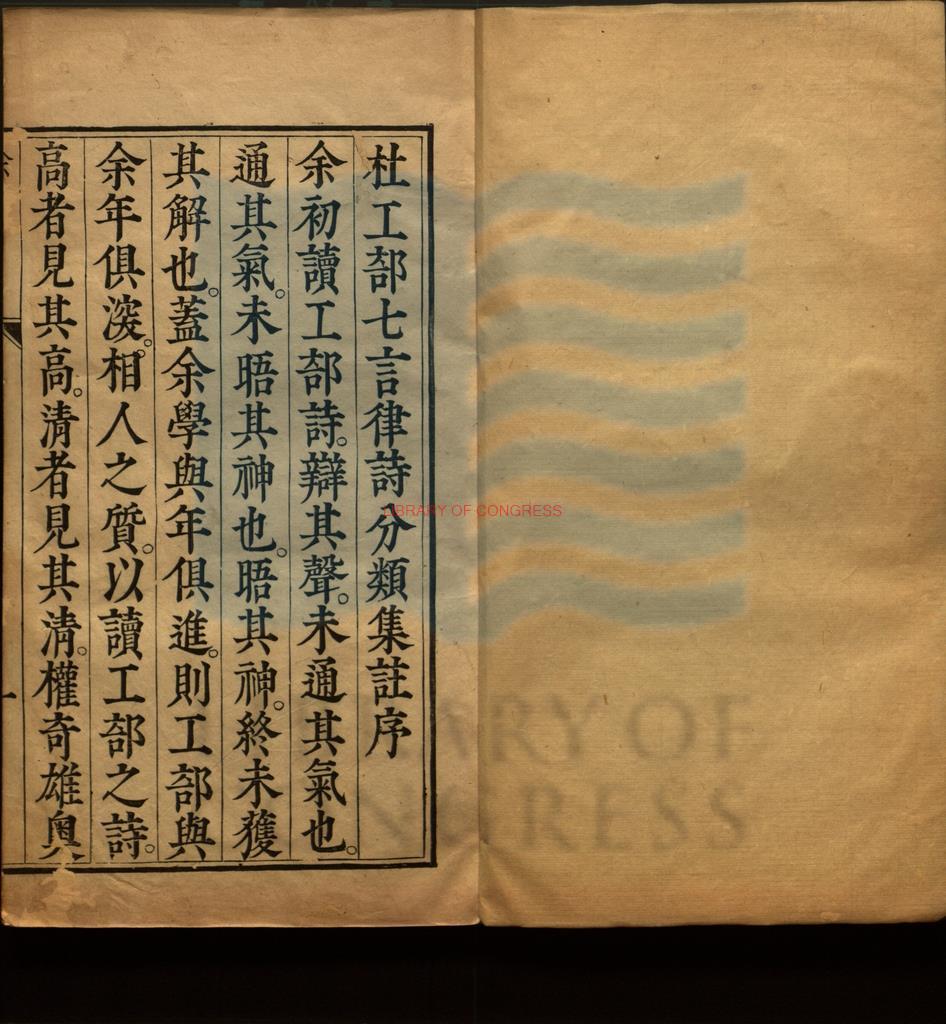 杜工部七言律詩分類集註序
余初讀工部詩。辯其聲。未通其氣也。
通其氣。未晤其神也。晤其神。終未獲
其解也。蓋余學與年俱進。則工部與
余年俱深。相人之質。以讀工部之詩。
高者見其高。清者見其清。權奇雄奧
LIBRARY OF CONGRESS